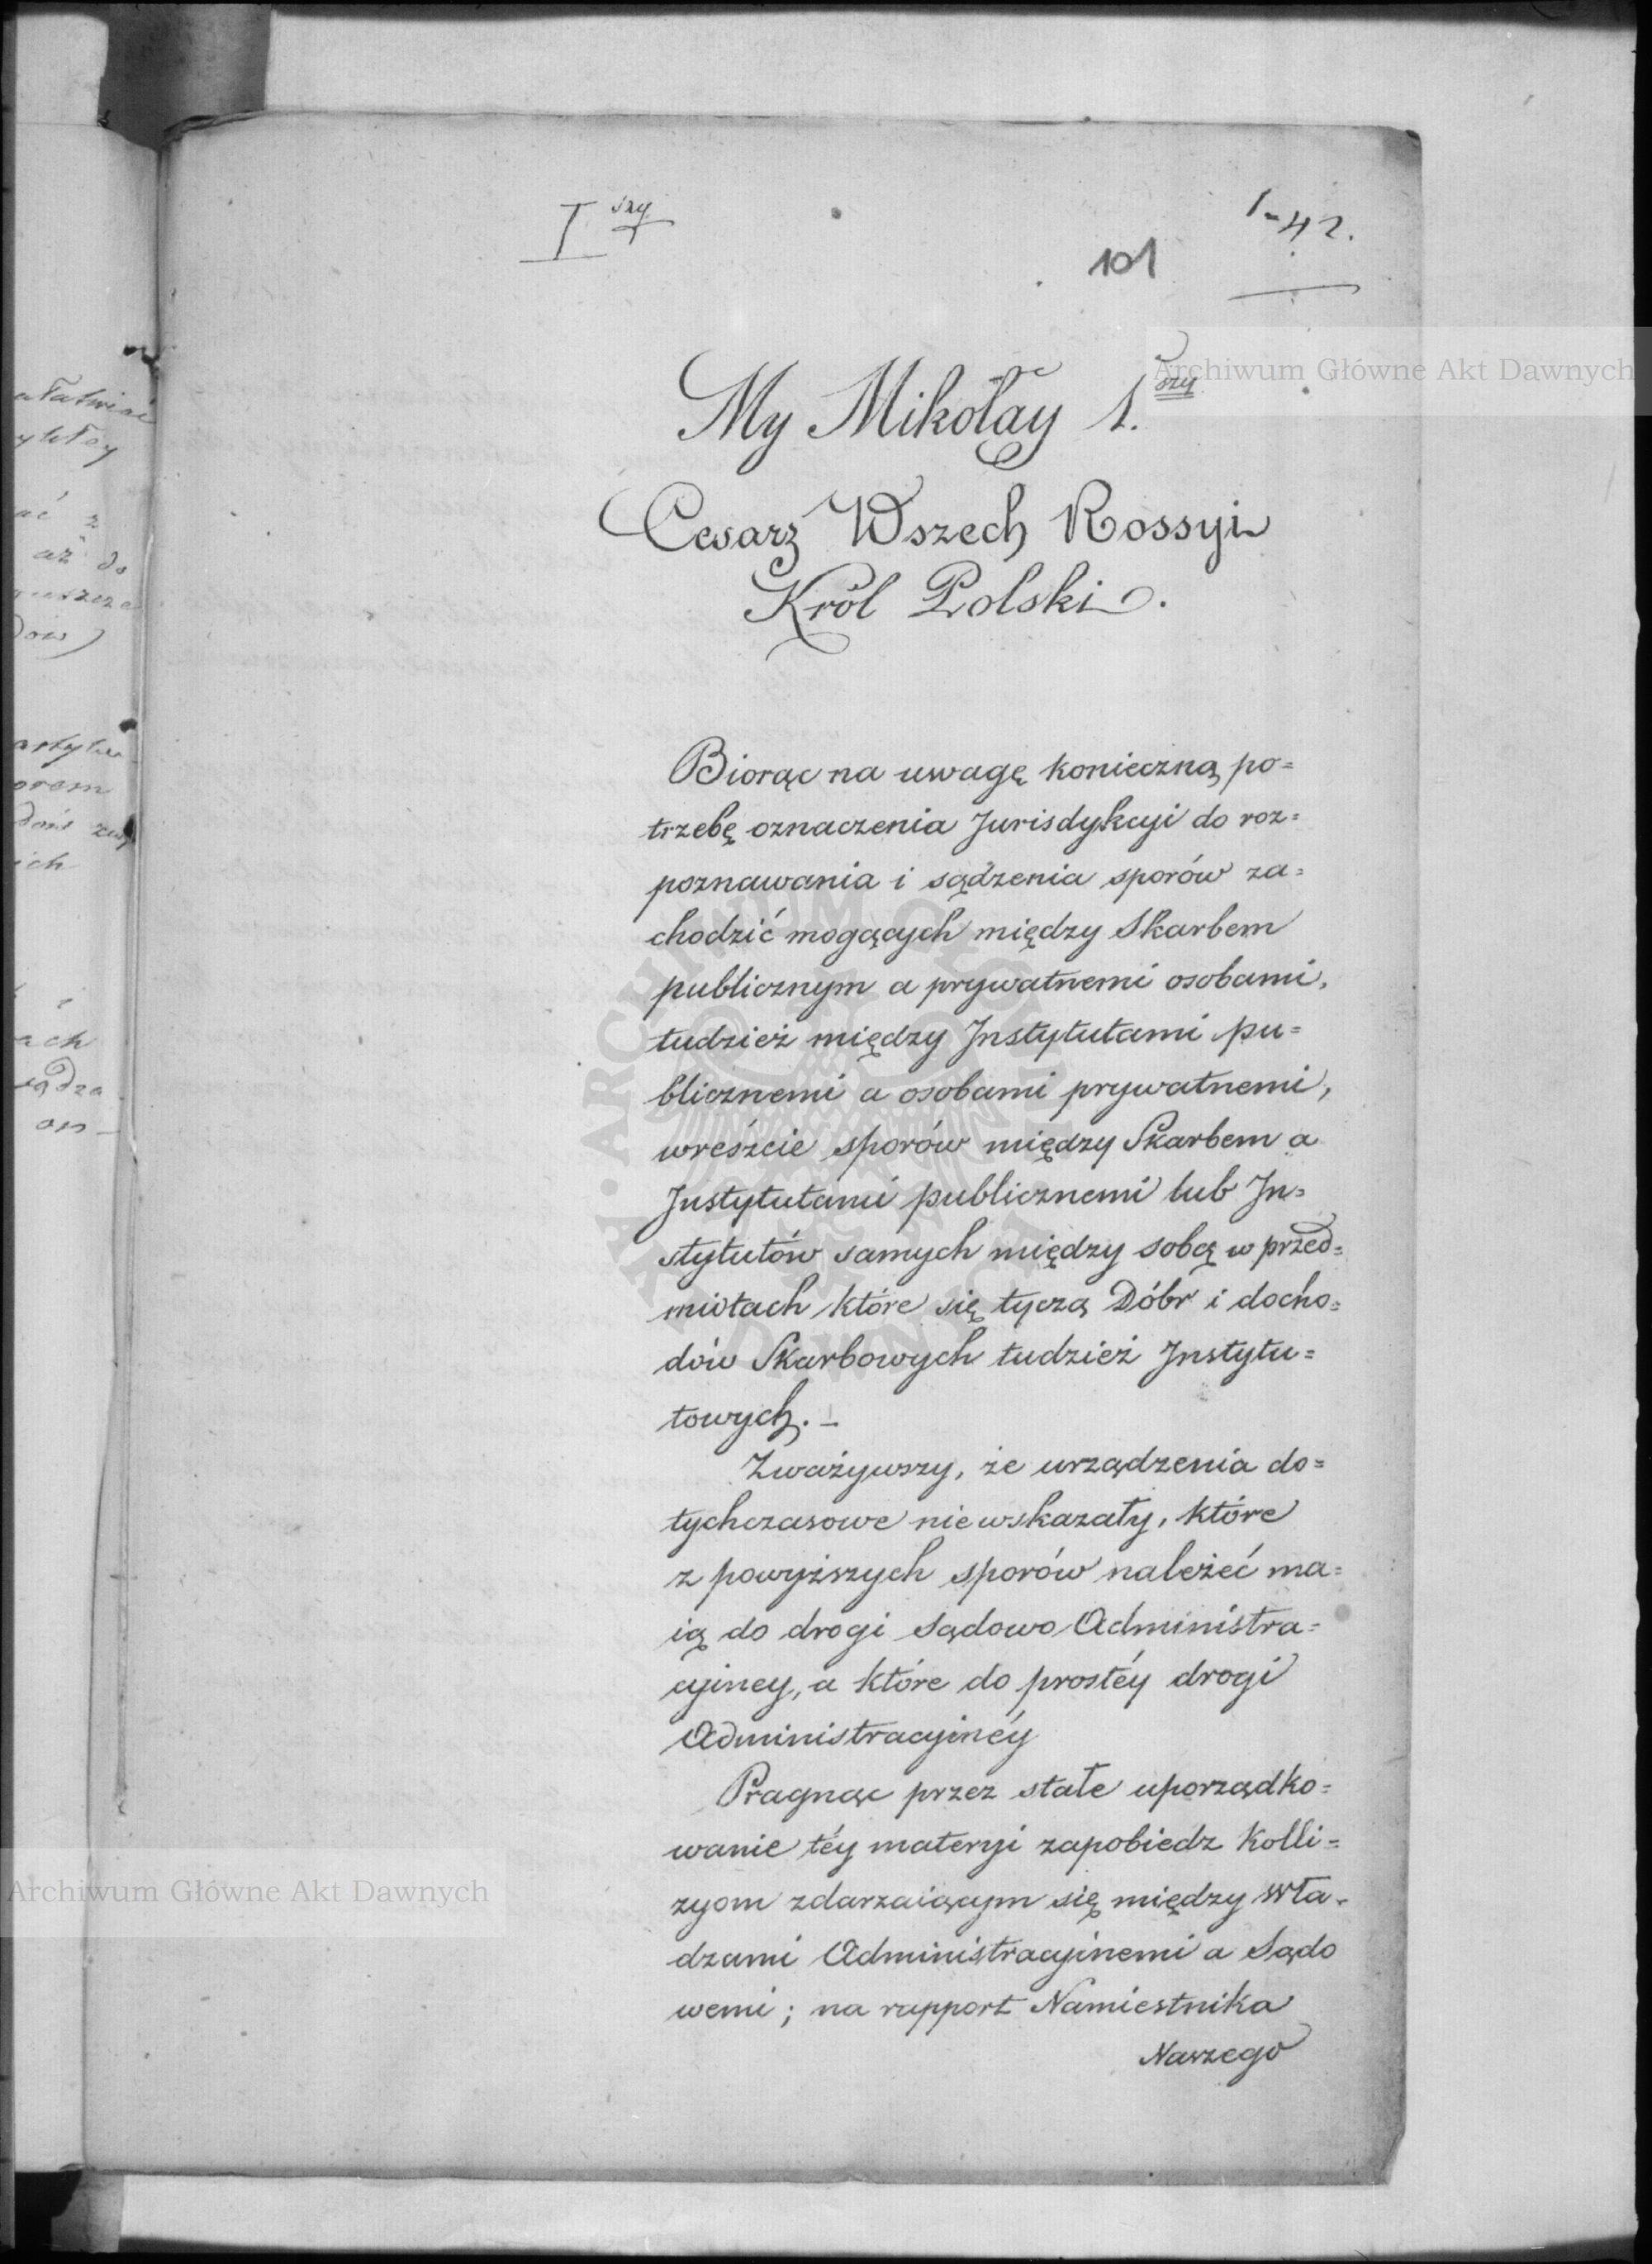 I szy
1-42.
101
My Mikołay 1. szy
Cesarz Wszech Rossyi
Król Polski.
Biorąc na uwagę konieczną po=
trzebę oznaczenia Jurisdykcyi do roz=
poznawania i sądzenia sporów za=
chodzić mogących między Skarbem
publicznym a prywatnemi osobami,
tudzież między Instytutami pu=
blicznemi a osobami prywatnemi,
wreszcie sporów między Skarbem a
Instytutami publicznemi lub In=
stytutów samych między sobą w przed=
miotach które się tyczą Dóbr i docho=
dów Skarbowych tudzież Instytu=
towych.-
Zważywszy, że urządzenia do=
tychczasowe nie wskazały, które
z powyższych sporów należeć ma=
ią do drogi Sądowo Administra=
cyiney, a które do prostéy drogi
Administracyinéy
Pragnąc przez stałe uporządko=
wanie téy materyi zapobiedz Kolli=
zyom zdarzaiącym się między Wła=
dzami Administracyinemi a Sądo
wemi; na rapport Namiestnika
Naszego
ytłey
ać z
aż do
dow)
orem
ich
ach
on
Archiwum Główne Akt Dawnych
Archiwum Główne Akt Dawnych